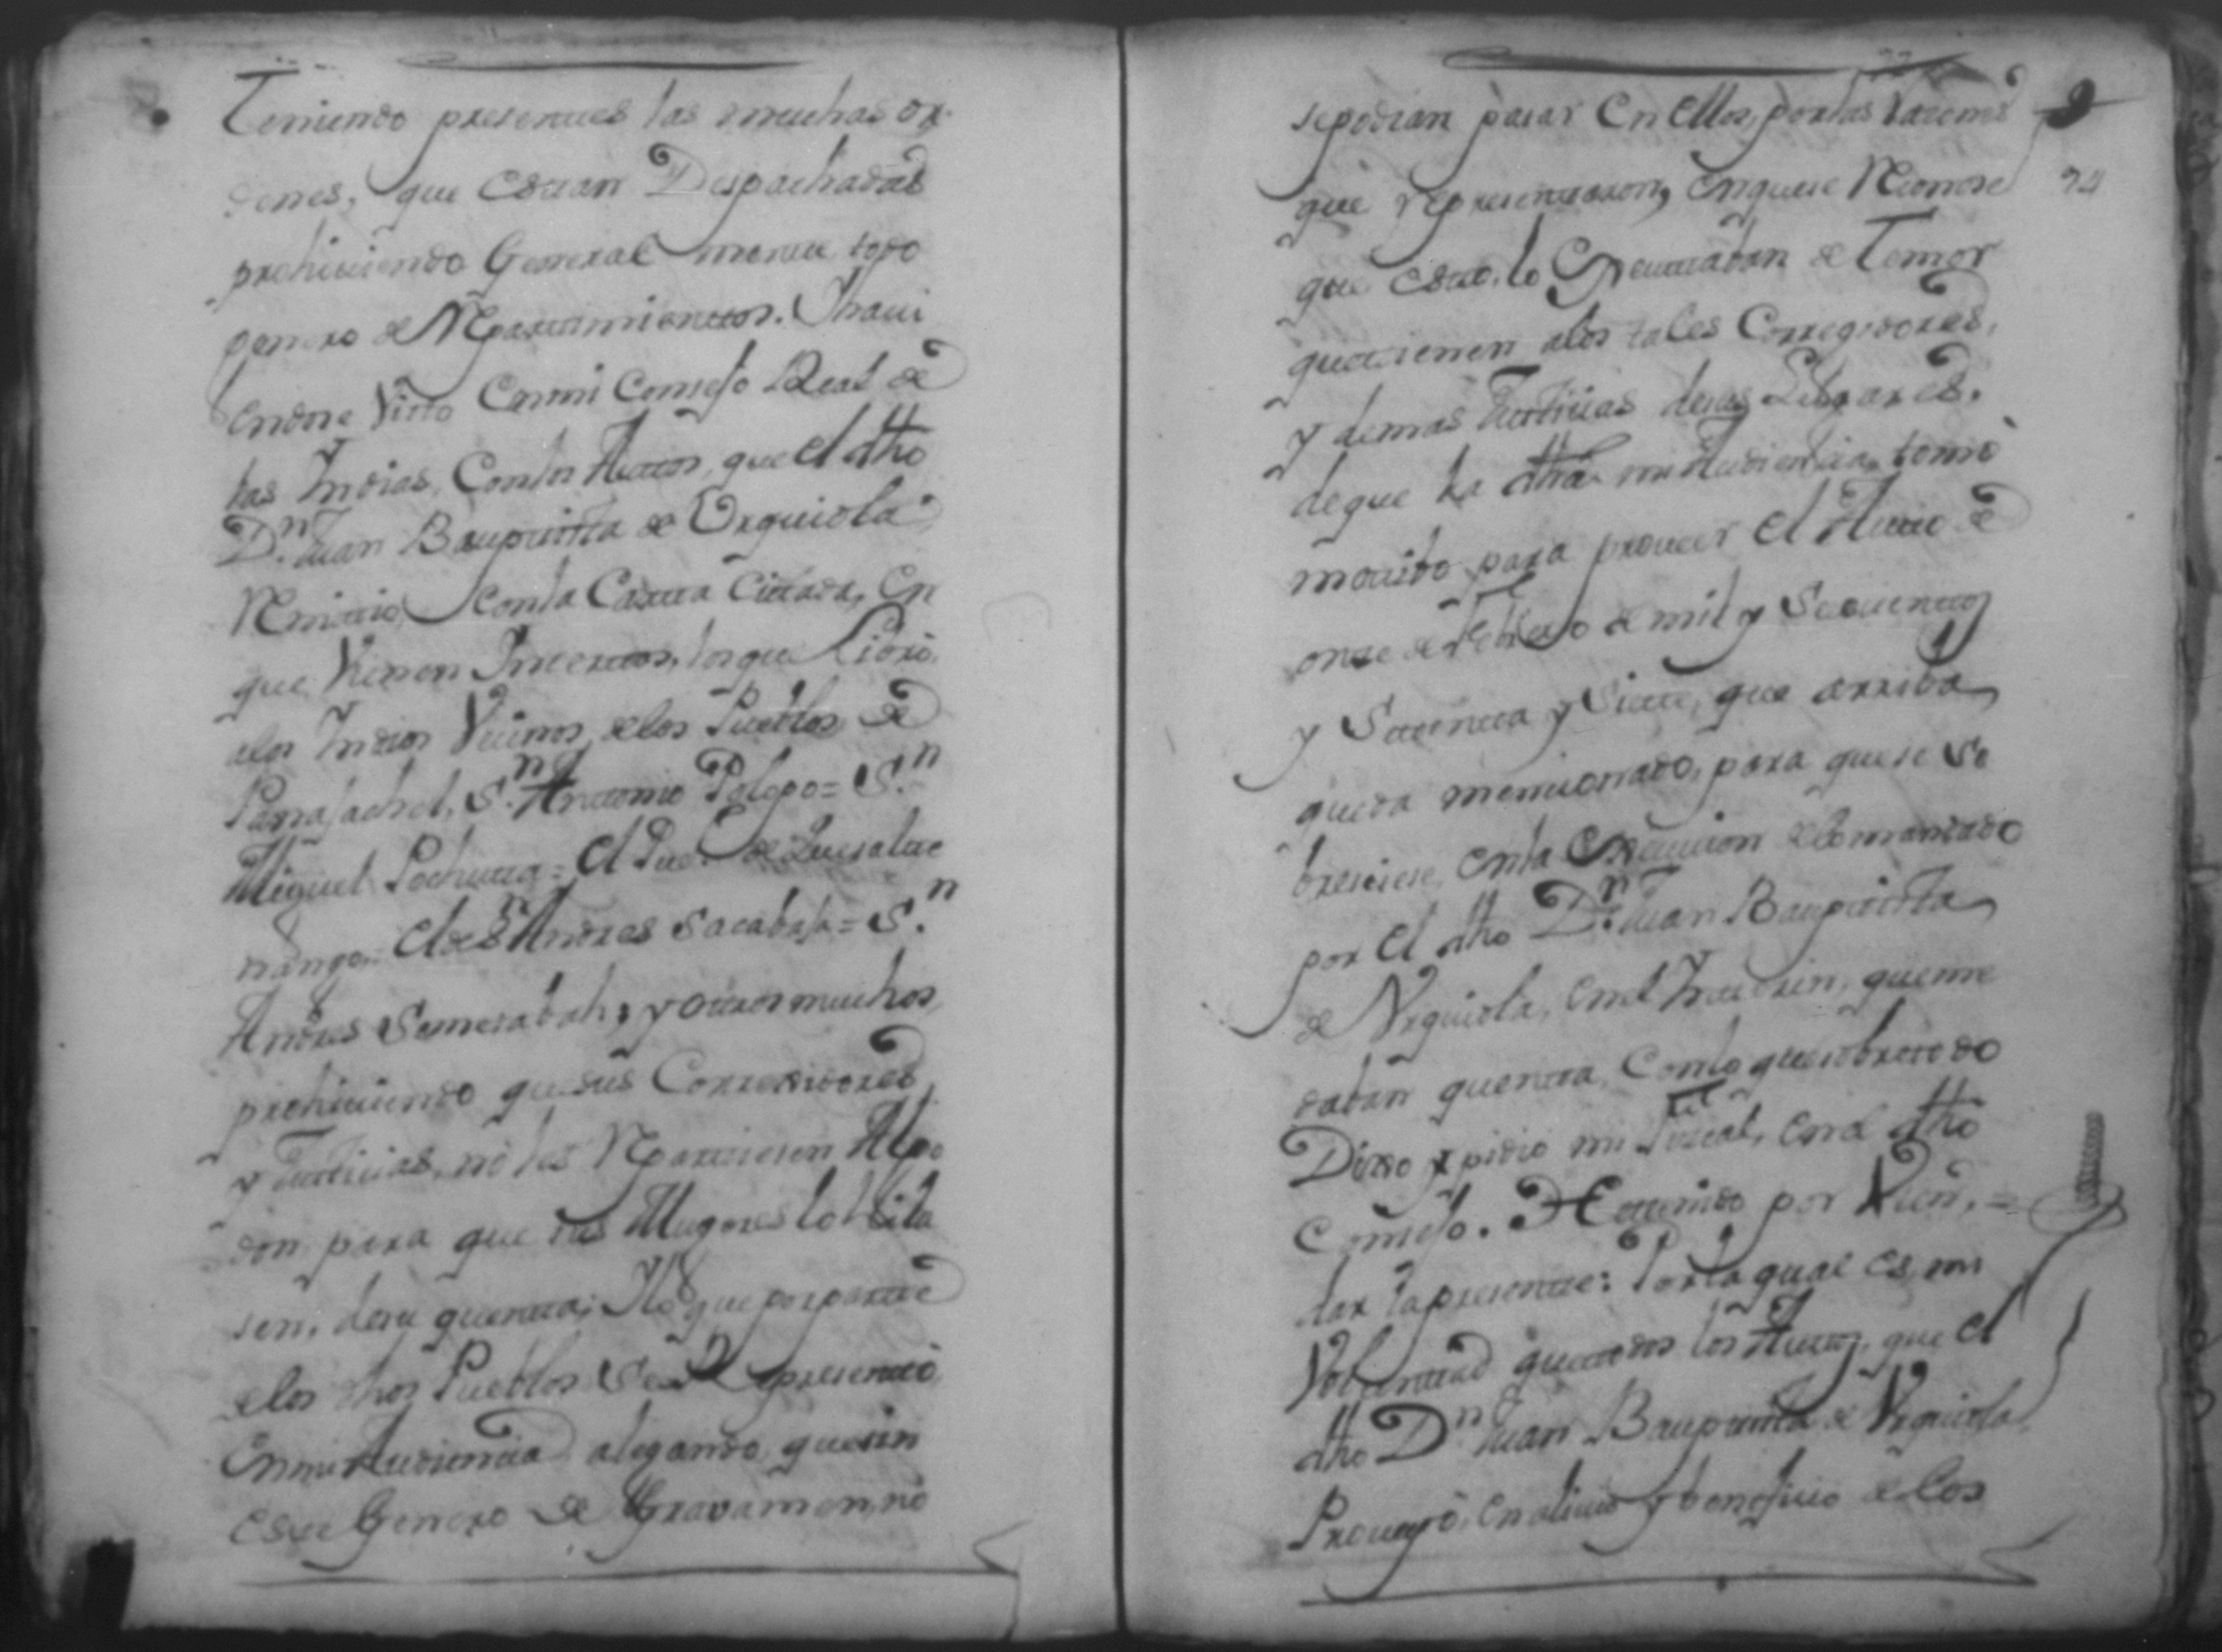 Teniendo presentes las muchas or-
denes, que estan Despachadas
prohiuiendo General mente todo
genero de Repartimientos. Y haui
endose Visto en mi Consejo Real de
las Indias, Con los Autos, que el dho
D.n Juan Bauptista de Vrquiola
Remitio, con la Carta Citada, En
que Vienen Incertos, los que Libró
a los Indios Vecinos, de los Pueblos de
Panajachel, S.n Antonio Polopo = S.n
Miguel Pochuta = el Pue.º de Quesalte
nango = el de S.n Andres Sacabaja = S.n
Andres Semetabah; y otros muchos,
prohiuiendo que sus Corregidores
y Justicias, no les Repartiesen Algo
don para que sus Mugeres lo hila
sen, de su quenta; Y lo que por parte
de los dhos Pueblos Se Represento
En mi Audiencia alegando, que sin
este Genero de Gravamen, no
se podian pasar En ellos, por las Razones
9
que representaron, en que se Reconose
74
que esto, lo Executaban de Temor
que tienen a los tales Corregidores,
y demas Justicias de sus Lugares,
de que la dha mi Audiencia tomó
motibo para proueer el Auto de
onze de Febrero de mil y Seiscientos
y Setenta y Siete, que arriba
queda mencionado, para que se so
breseiese, en la Execucion de lo mandado
por el dho D.n Juan Baupista
de Vrquiola, en el Interin, que me
daban quenta, Con lo que sobre todo
Dixo y pidio mi Fiscal, en el dho
Consejo. He tenido por Vien, =
dar la presente: Por la qual es mi
Voluntad que todos los Autos, que el
dho D.n Juan Baupista de Vrquiola,
Proueyó, en aliuio y beneficio de los